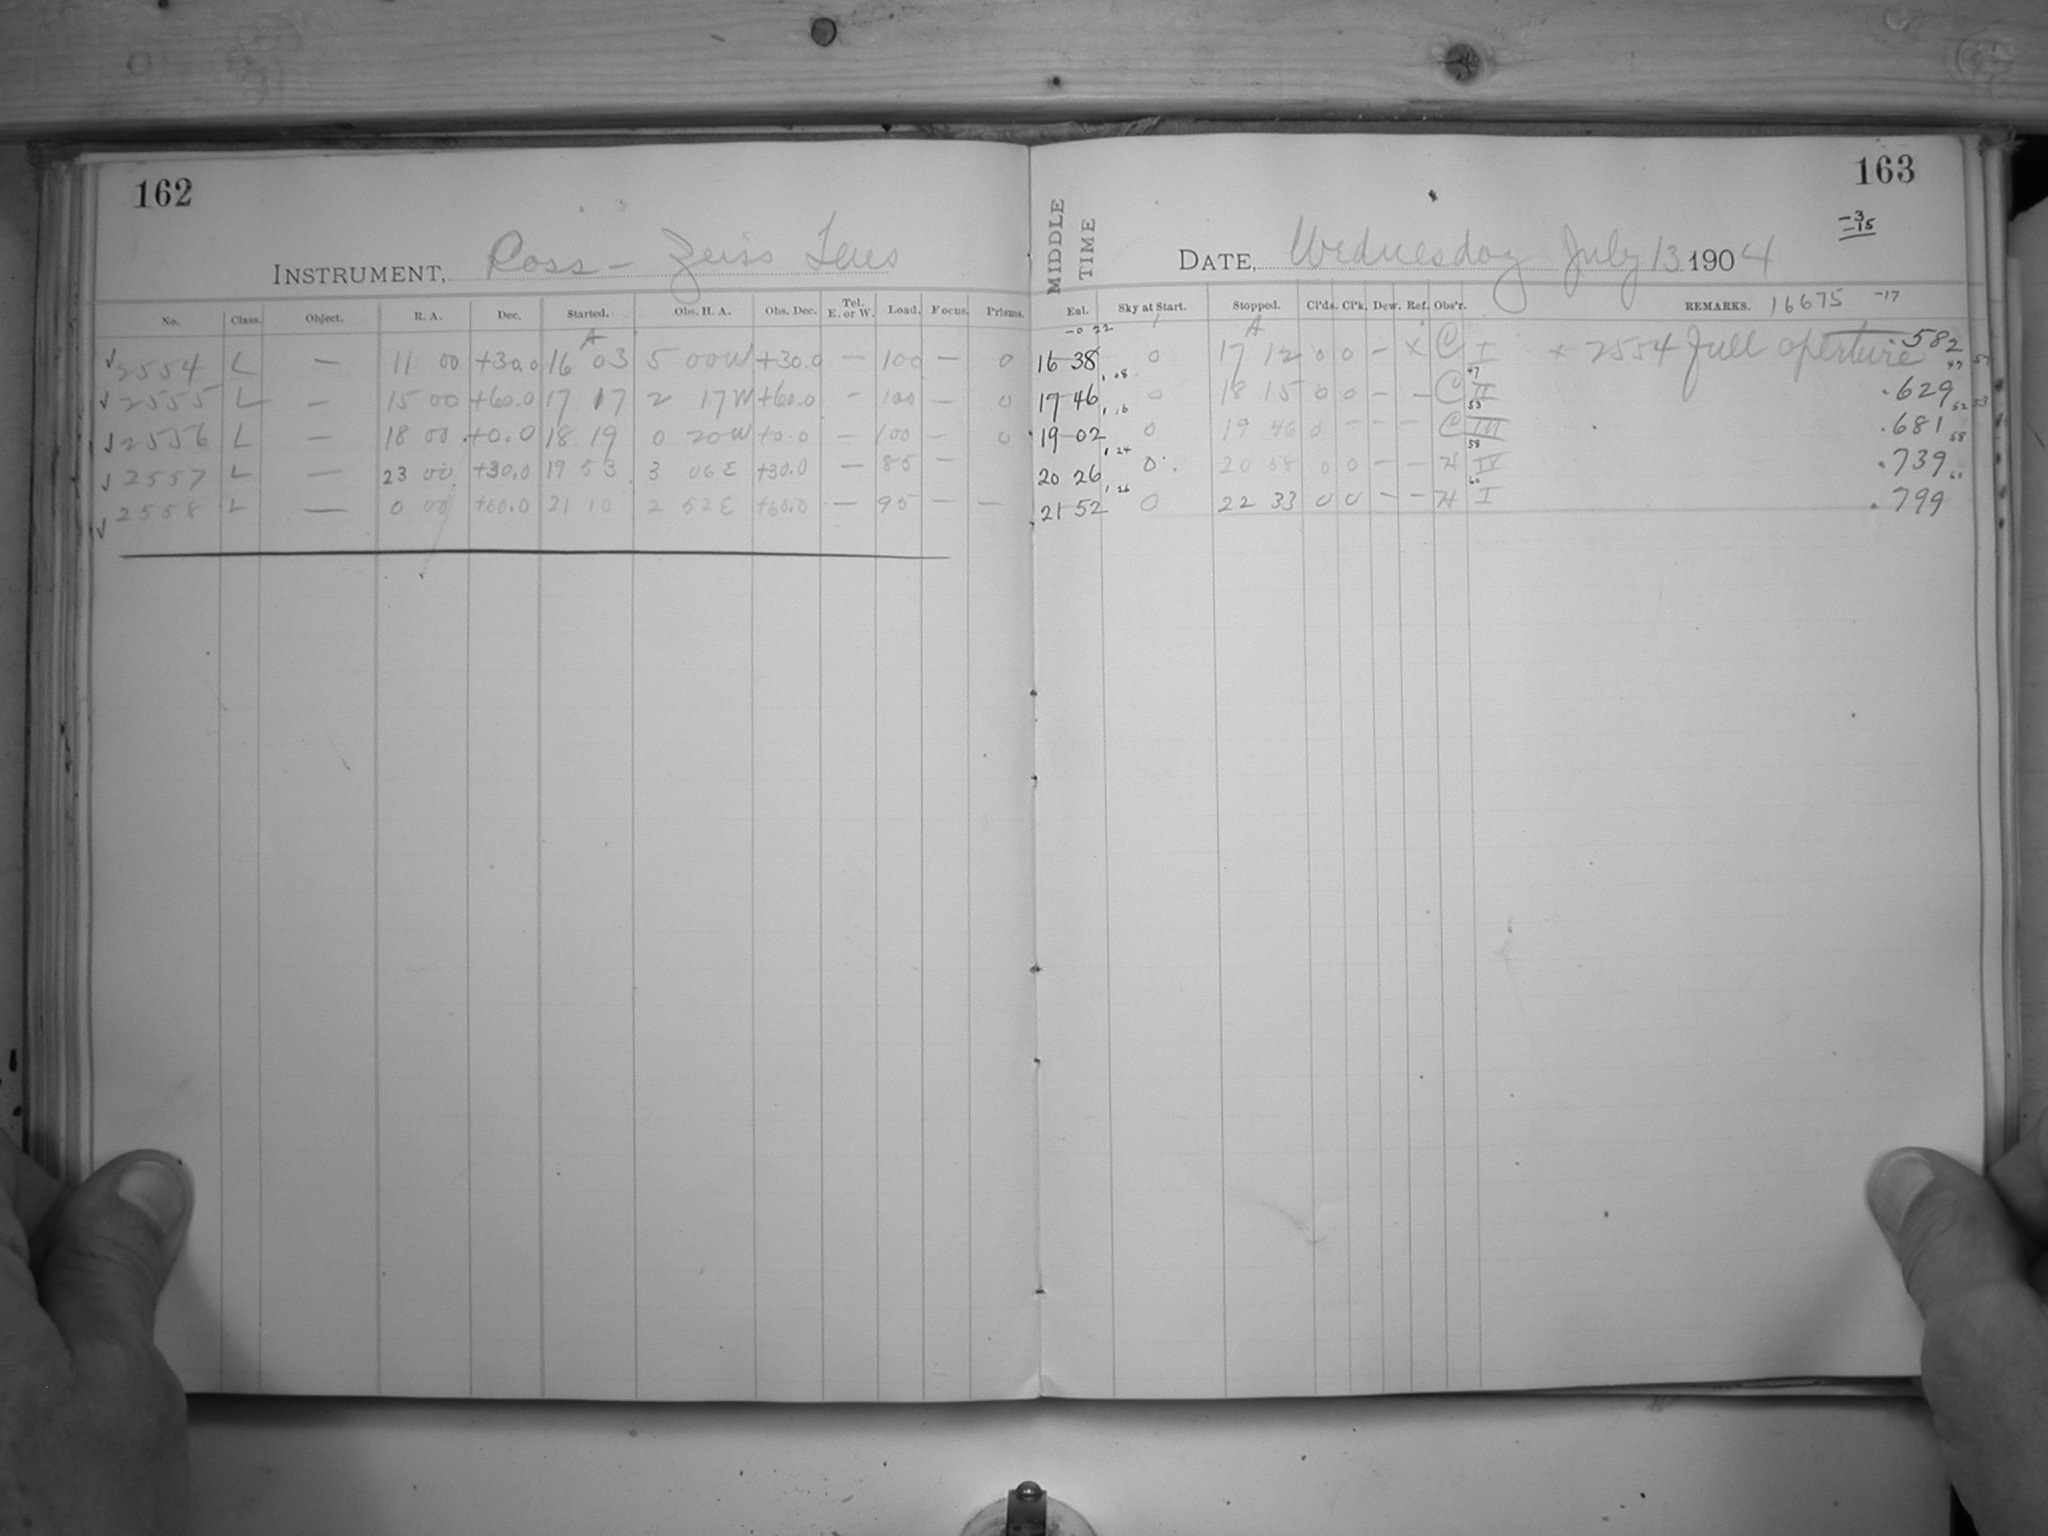 162
INSTRUMENT, Ross - Zeiss Lens
No. Class. Object. R. A. Dec. Started. Obs. H. A. Obs. Dec. Tel. E. or W. Load. Focus. Prisms.
A
✓ 2554 L — 11 00 +30.0 16 03 5 00W +30.0 — 100 — 0
✓ 2555 L — 15 00 +60.0 17 17 2 17W +60.0 — 100 — 0
✓ 2556 L — 18 00 +0.0 18 19 0 20W +0.0 — 100 — 0
✓ 2557 L — 23 00 +30.0 19 53 3 06E +30.0 — 85 —
✓ 2558 L — 0 00 +60.0 21 10 2 52E +60.0 — 95 — —
163
-3
-15
MIDDLE TIME
DATE, Wednesday July 13 1904
Sky at Start. Stopped. Cl'ds. Cl'k. Dew. Ref. Obs'r. REMARKS. 16675 -17
-0 22 A
16 38 0 17 12 0 0 — X C I × 2554 full aperture .582
17 46 0 18 15 0 0 — — C II .629
19 02 0 19 46 0 — — — C III .681
20 26 0 20 58 0 0 — — H IV .739
21 52 0 22 33 0 0 — — H I .799